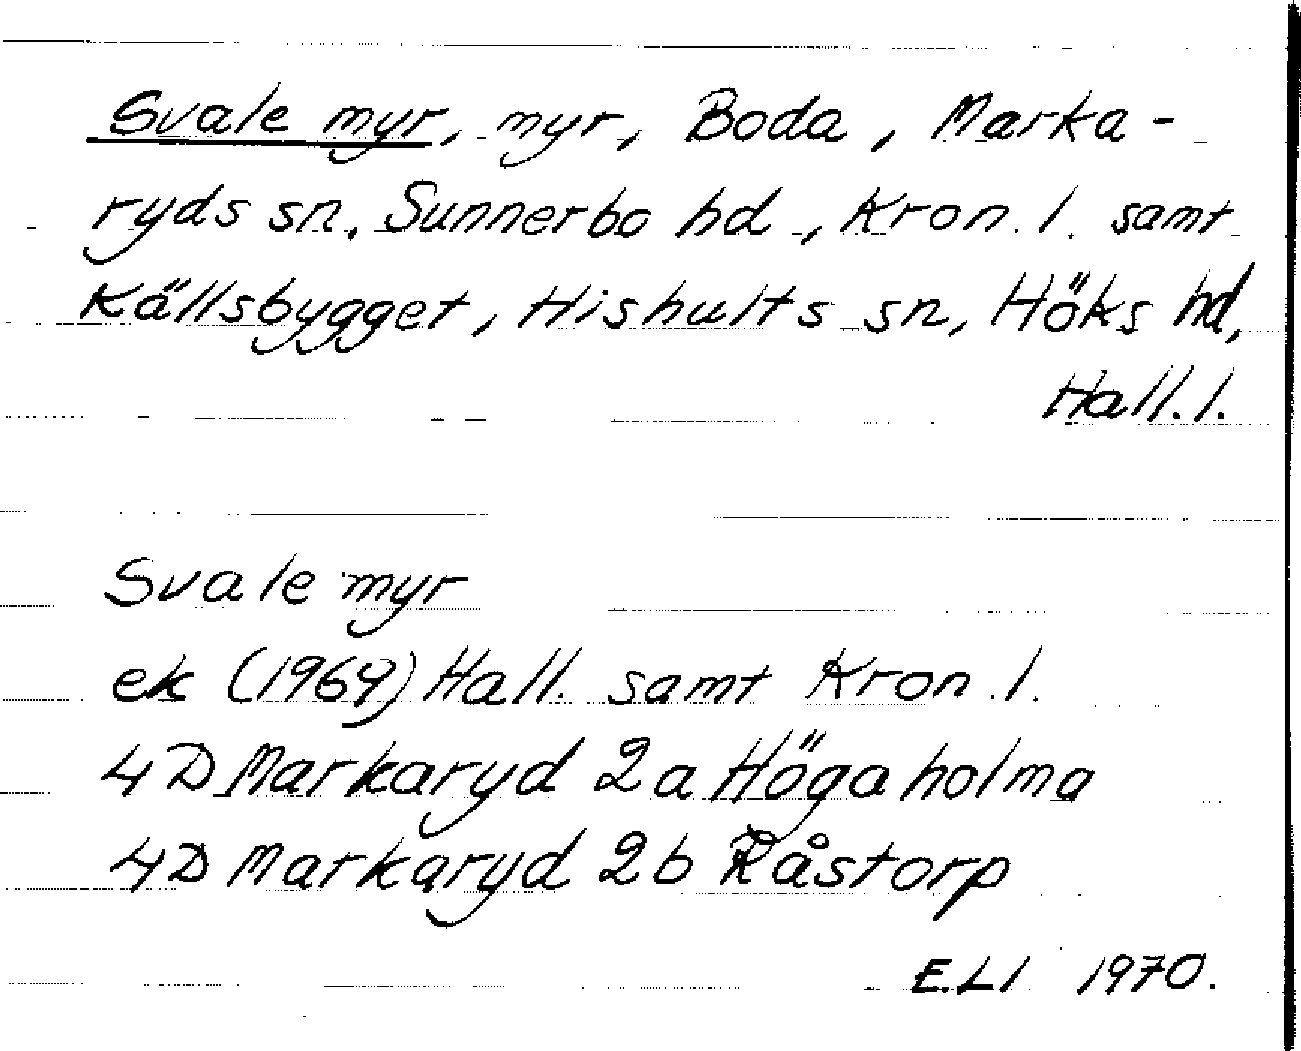 Svale myr, myr, Boda, Marka-
ryds sn, Sunnerbo hd, Kron. l. samt
Källsbygget, Hishults sn, Höks hd,
Hall. l.
Svale myr
ek (1969) Hall. samt Kron. l.
4D Markaryd 2a Högaholma
4D Markaryd 2b Råstorp
E.LI 1970.